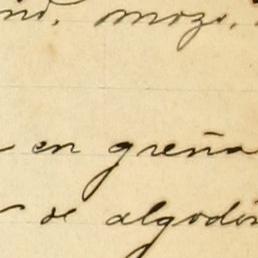 mozo,
en greña
de algodón